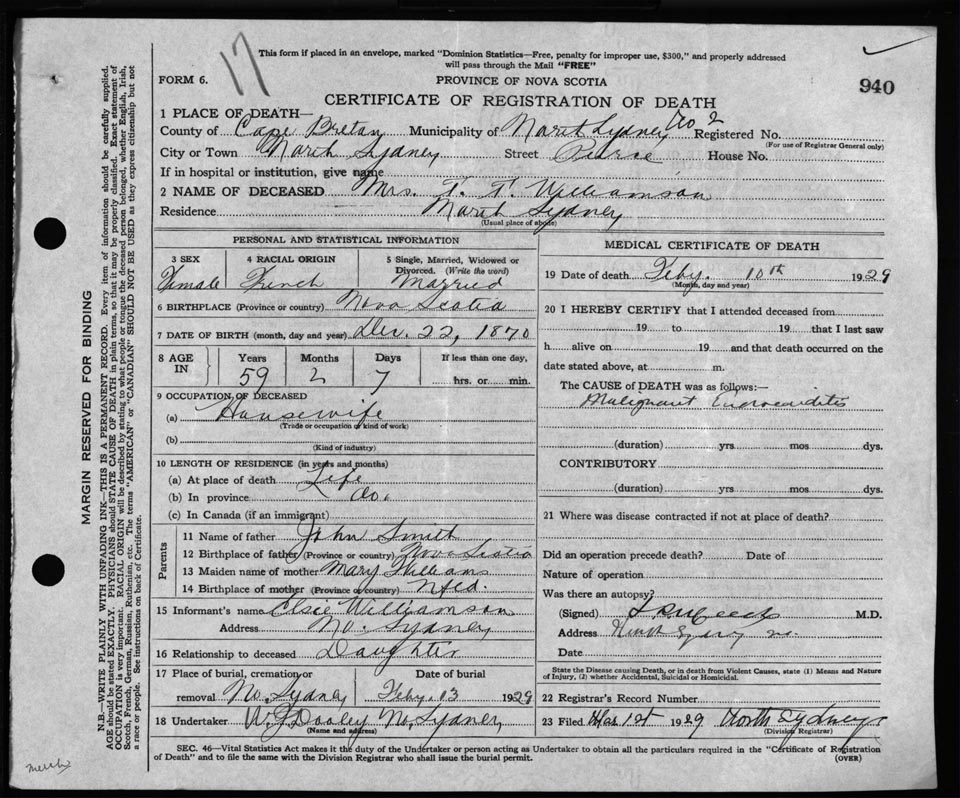 17
This form if placed in an envelope, marked "Dominion Statistics—Free, penalty for improper use, $300," and properly addressed
will pass through the Mail "FREE"
FORM 6.
PROVINCE OF NOVA SCOTIA
940
CERTIFICATE OF REGISTRATION OF DEATH
1 PLACE OF DEATH—
County of Cape Breton Municipality of North Sydney No 2 Registered No.
(For use of Registrar General only)
City or Town North Sydney Street Pierce House No.
If in hospital or institution, give name
2 NAME OF DECEASED Mrs. T. T. Williamson
Residence North Sydney
(Usual place of abode)
PERSONAL AND STATISTICAL INFORMATION
3 SEX Female
4 RACIAL ORIGIN French
5 Single, Married, Widowed or Divorced. (Write the word) Married
6 BIRTHPLACE (Province or country) Nova Scotia
7 DATE OF BIRTH (month, day and year) Dec. 22, 1870
8 AGE IN Years 59 Months 2 Days 7 If less than one day, hrs. or min.
9 OCCUPATION OF DECEASED
(a) Housewife
(Trade or occupation of kind of work)
(b)
(Kind of industry)
10 LENGTH OF RESIDENCE (in years and months)
(a) At place of death Life
(b) In province do.
(c) In Canada (if an immigrant)
Parents
11 Name of father John Smith
12 Birthplace of father (Province or country) Nova Scotia
13 Maiden name of mother Mary Williams
14 Birthplace of mother (Province or country) Nfld.
15 Informant's name Elsie Williamson
Address No. Sydney
16 Relationship to deceased Daughter
17 Place of burial, cremation or removal No. Sydney Date of burial Feby. 13 1929
18 Undertaker W. G. Dooley No. Sydney
(Name and address)
MEDICAL CERTIFICATE OF DEATH
19 Date of death Feby. 10th 1929
(Month, day and year)
20 I HEREBY CERTIFY that I attended deceased from
19 to 19 that I last saw
h alive on 19 and that death occurred on the
date stated above, at m.
The CAUSE of DEATH was as follows:—
Malignant Endocarditis
(duration) yrs mos dys.
CONTRIBUTORY
(duration) yrs. mos dys.
21 Where was disease contracted if not at place of death?
Did an operation precede death? Date of
Nature of operation
Was there an autopsy?
(Signed) M.D.
Address North Sydney
Date
State the Disease causing Death, or in death from Violent Causes, state (1) Means and Nature
of Injury, (2) whether Accidental, Suicidal or Homicidal.
22 Registrar's Record Number
23 Filed Mar 1st 1929 North Sydney
(Division Registrar)
SEC. 46—Vital Statistics Act makes it the duty of the Undertaker or person acting as Undertaker to obtain all the particulars required in the "Certificate of Registration
of Death" and to file the same with the Division Registrar who shall issue the burial permit.
(OVER)
MARGIN RESERVED FOR BINDING
N.B.—WRITE PLAINLY WITH UNFADING INK—THIS IS A PERMANENT RECORD. Every item of information should be carefully supplied.
AGE should be stated EXACTLY. PHYSICIANS should STATE CAUSE OF DEATH in plain terms, so that it may be properly classified. Exact statement of
OCCUPATION is very important. RACIAL ORIGIN will be described by stating to what people or tongue the deceased person belonged, whether English, Irish,
Scotch, French, German, Russian, Ruthenian, etc. The terms "AMERICAN" or "CANADIAN" SHOULD NOT BE USED as they express citizenship but not
a race or people. See instructions on back of Certificate.